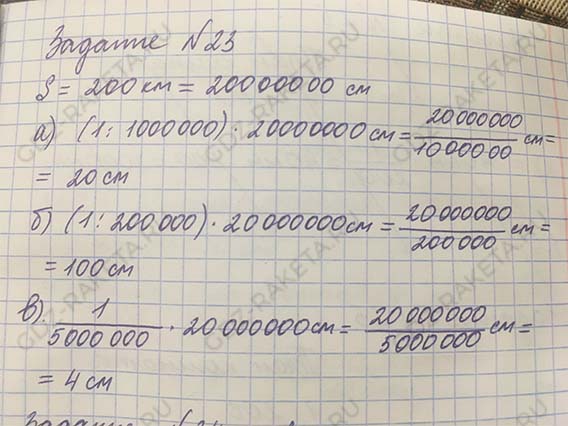 Задание №23
S = 200 км = 20000000 см
а) (1 : 1000000) · 20000000 см = 20000000/1000000 см =
= 20 см
б) (1 : 200000) · 20000000 см = 20000000/200000 см =
= 100 см
в). 1/5000000 · 20000000 см = 20000000/5000000 см =
= 4 см
GDZ-RAKETA.RU